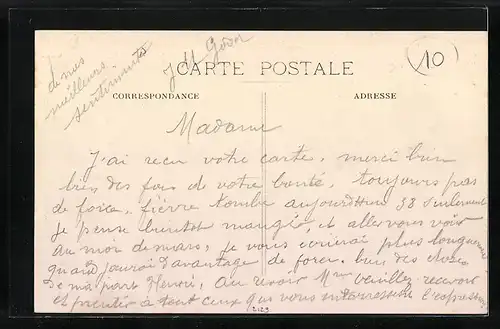 de mes
meilleurs
sentiments
10
CARTE POSTALE
CORRESPONDANCE
ADRESSE
Madame
J'ai recu votre carte, merci bien
bien des fois de votre bonté, toujours pas
de force, fièvre tombe aujourd'hui 38 seulement
je pense bientot manger, et aller vous voir
au moi de mars, je vous ecrirai plus longuement
quand j'aurai d'avantage de force. bien des choses
de ma part Henri, au revoir Mme veuillez recevoir
et a tout ceux que vous l'expression
2123